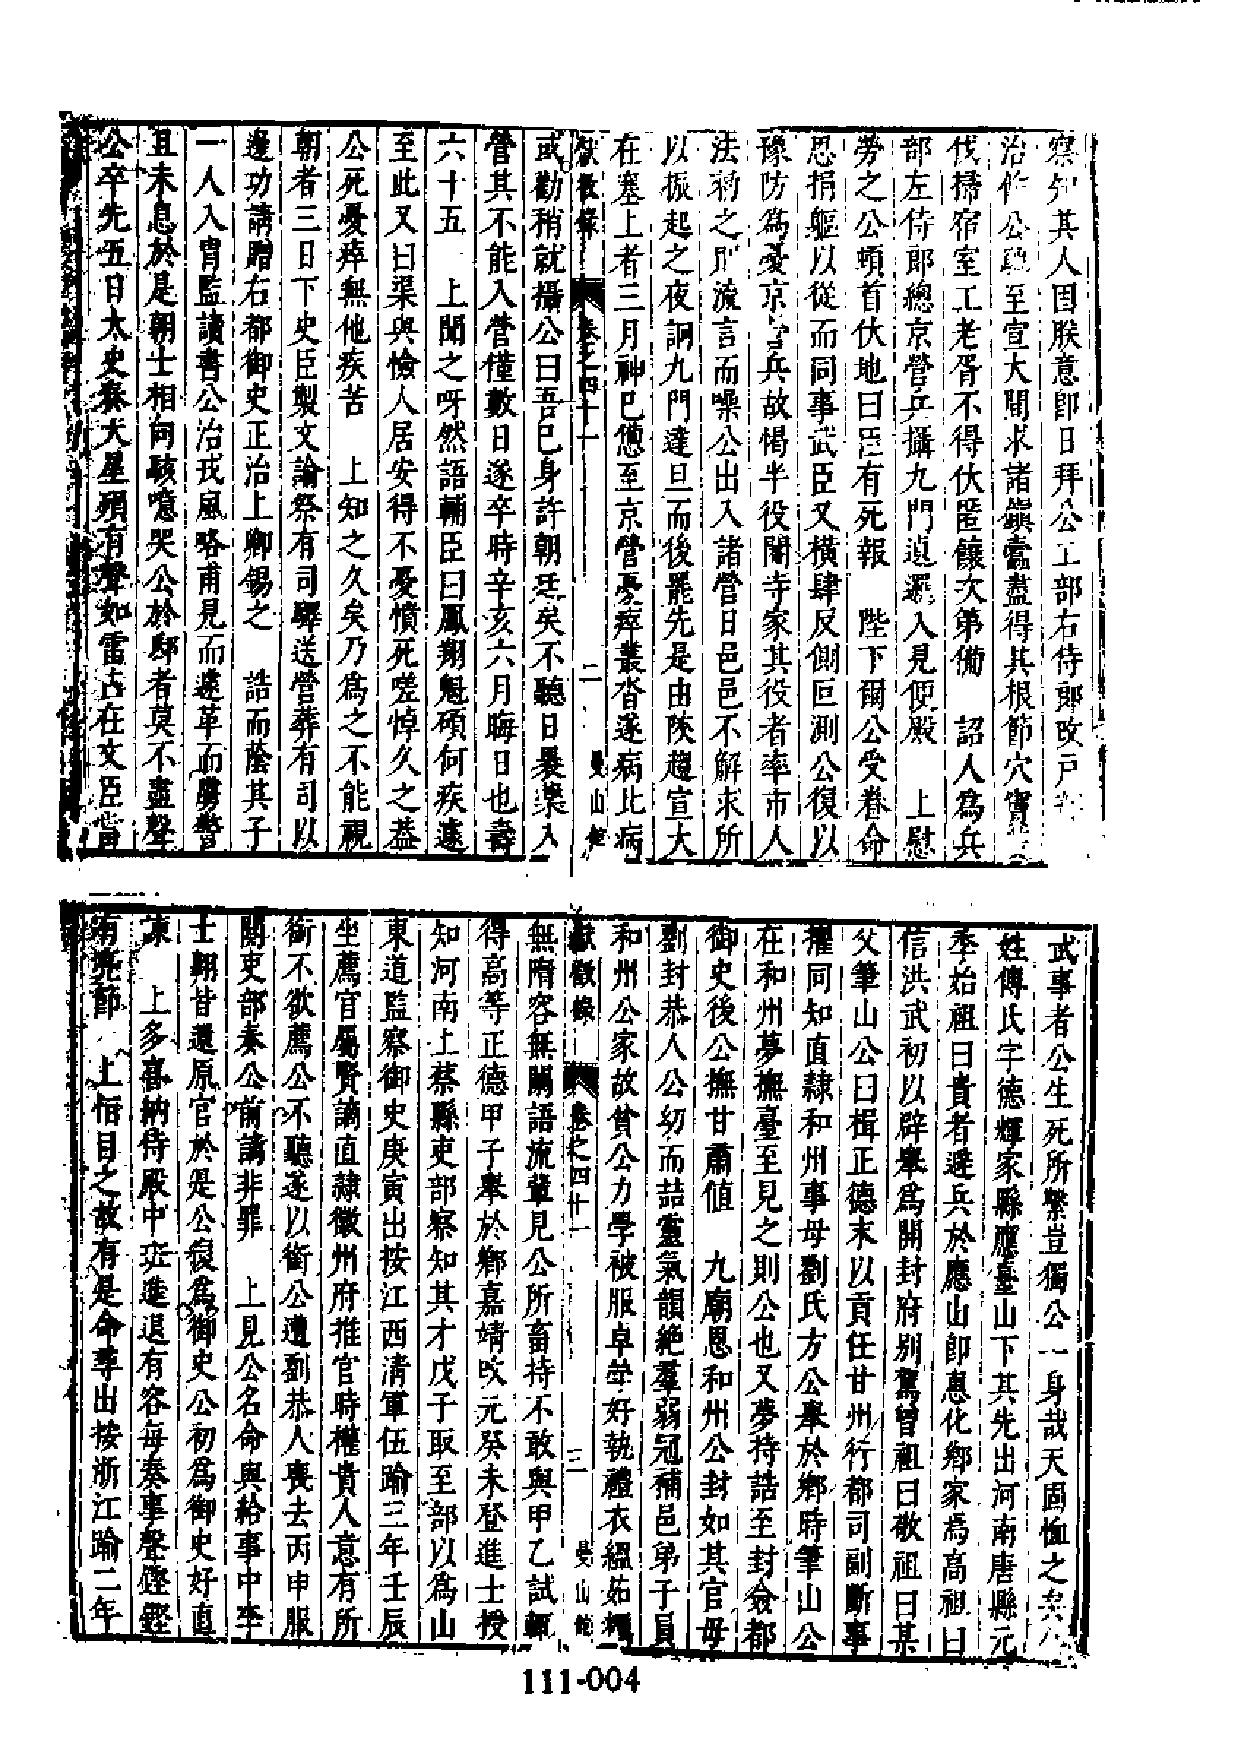 察知其人固朕意卽日拜公工部右侍郎改戶部
治作公疏至宣大閱求諸鎭蠹盡得其根節穴竇
伐掃宿室工老胥不得伏匿饟次第備　詔人爲兵
部左侍郎總京營兵攝九門逴邏入見便殿　上慰
勞之公頓首伏地曰臣有死報　陛下爾公受眷命
思捐軀以從而同事武臣又橫肆反側叵測公復以
豫防爲憂京營兵故偈半役閹寺家其役者率市人
法藥之則流言而噪公出入諸營日邑邑不解求所
以振起之夜詗九門達旦而後罷先是由陝趨宣大
在塞上者三月神已憊至京營憂瘁叢沓遂病比病
獻徵錄　卷之四十一　二　曼山館
或勸稍就攝公曰吾已身許朝廷矣不聽日異槼入
營其不能入營僅數日遂卒時辛亥六月晦日也壽
六十五　上聞之呀然語輔臣曰鳳翔魁碩何疾遽
至此又曰渠與憸人居安得不憂憤死嗟悼久之蓋
公死憂瘁無他疾苦　上知之久矣乃爲之不能視
朝者三日下史臣製文諭祭有司驛送營葬有司以
邊功請贈右都御史正治上卿錫之　誥而蔭其子
一人入胄監讀書公治戎風略甫見而遽革而虜警
且未息於是朝士相向駭噫哭公於邸者莫不盡聲
公卒先五日太史奏大星殞有聲如雷占在文臣當
武事者公生死所繫豈獨公一身哉天固恤之矣公
姓傅氏字德輝家縣應臺山下其先出河南唐縣元
季始祖曰貴者避兵於應山卽惠化鄉家焉高祖曰
信洪武初以辟舉爲開封府別駕曾祖曰敬祖曰某
父筆山公曰楫正德末以貢任甘州行都司副斷事
擢同知直隸和州事母劉氏方公舉於鄉時筆山公
在和州夢撫臺至見之則公也又夢持誥至封僉都
御史後公撫甘肅値　九廟恩和州公封如其官母
劉封恭人公幼而喆靈氣韻絶羣弱冠補邑弟子員
和州公家故貧公力學被服卓犖好執禮衣縕茹糲
獻徵錄　卷之四十一　三　曼山館
無隋容無闒語流輩見公所畜持不敢與甲乙試輒
得高等正德甲子舉於鄉嘉靖改元癸未登進士授
知河南上蔡縣吏部察知其才戊子取至部以爲山
東道監察御史庚寅出按江西清軍伍踰三年壬辰
坐薦官屬賢謫直隸徽州府推官時權貴人意有所
銜不欲薦公不聽遂以銜公遭劉恭人喪去丙申服
闋吏部奏公前謫非罪　上見公名命與給事中李
士翺昔還原官於是公復爲御史公初爲御史好直
諫　上多喜納侍殿中班進退有容每奏事聲鏗鏗
有亮節　上恒目之故有是命尋出按浙江踰二年
111-004